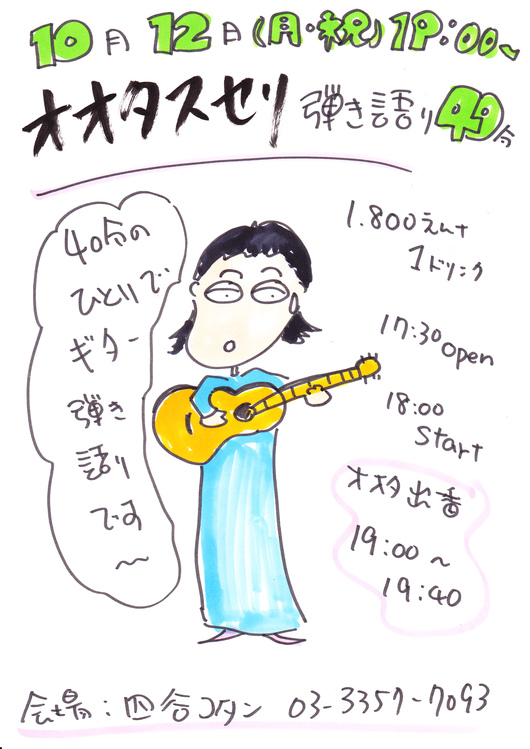 10月12日(月・祝)19:00~
オオタスセリ 弾き語り40分
40分の
ひとりで
ギター
弾き
語り
です
~
1.800えん+
1ドリンク
17:30 open
18:00
Start
オオタ出番
19:00~
19:40
会場:四谷コタン 03-3357-7093